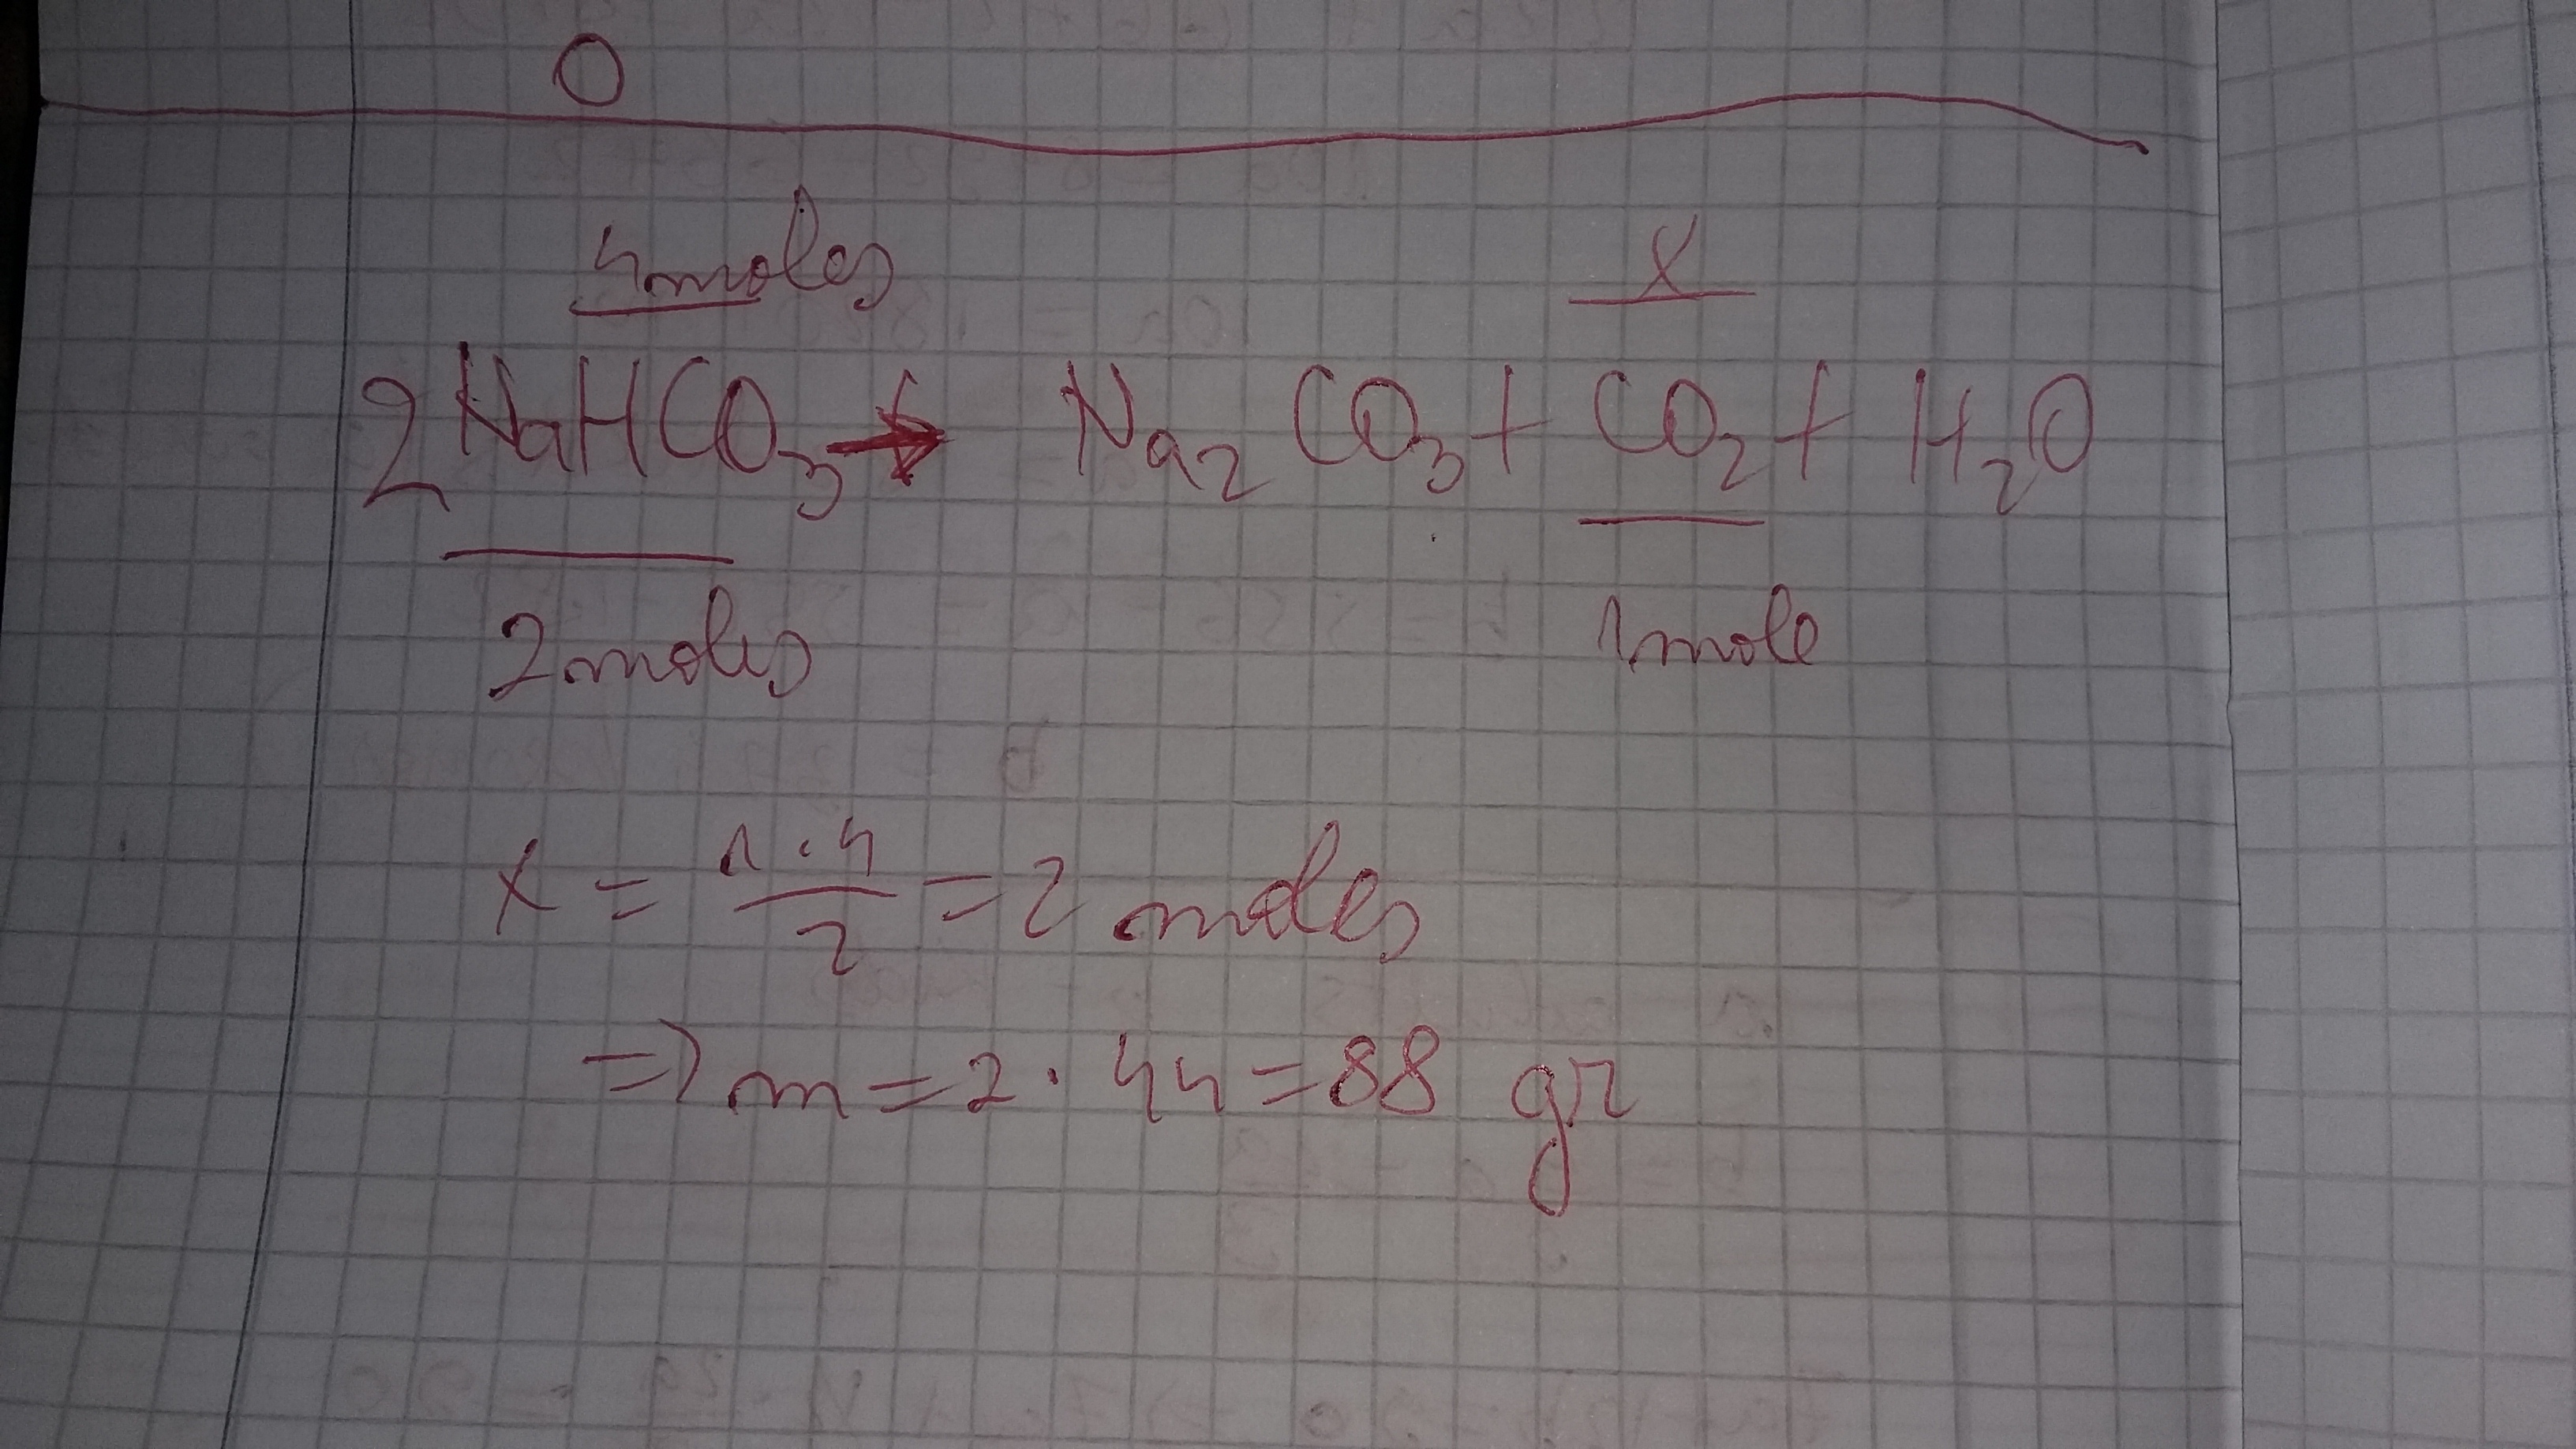 O
4moles x
2NaHCO₃ → Na₂CO₃ + CO₂ + H₂O
2moles 1mole
x = 1·4/2 = 2 moles
=> m = 2 · 44 = 88 gr